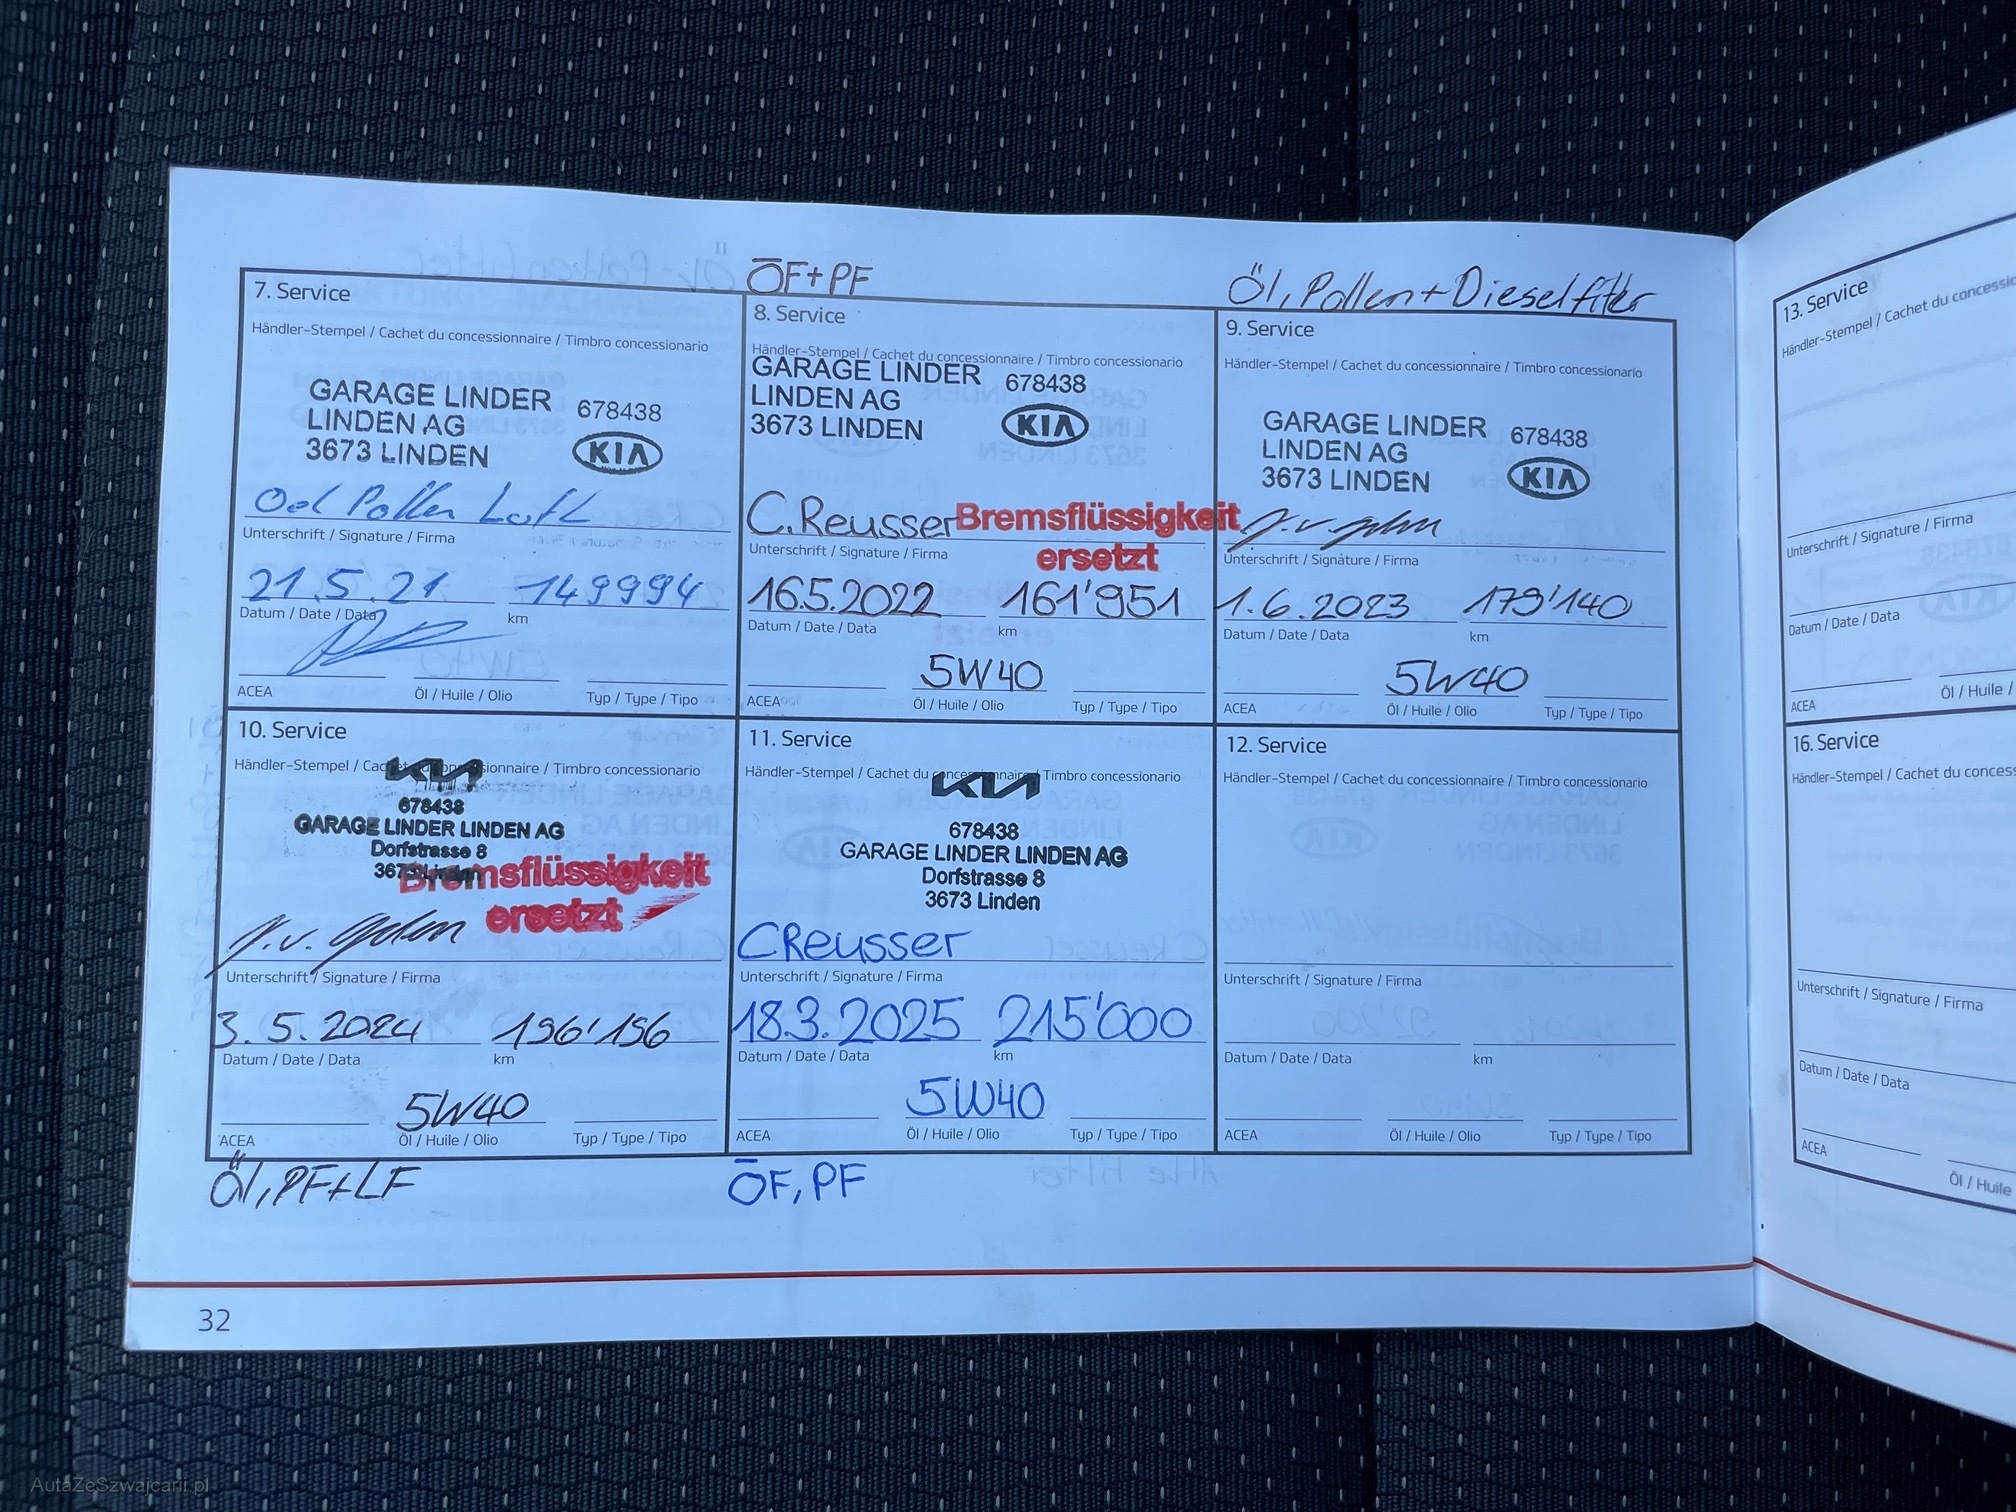 ÖF+PF
Öl, Pollen+Dieselfilter
7. Service
Händler-Stempel / Cachet du concessionnaire / Timbro concessionario
GARAGE LINDER 678438
LINDEN AG
3673 LINDEN KIA
Oel Pollen Luft
Unterschrift / Signature / Firma
21.5.21 149994
Datum / Date / Data km
ACEA Öl / Huile / Olio Typ / Type / Tipo
8. Service
Händler-Stempel / Cachet du concessionnaire / Timbro concessionario
GARAGE LINDER 678438
LINDEN AG
3673 LINDEN KIA
C.Reusser Bremsflüssigkeit
ersetzt
Unterschrift / Signature / Firma
16.5.2022 161'951
Datum / Date / Data km
5W40
ACEA Öl / Huile / Olio Typ / Type / Tipo
9. Service
Händler-Stempel / Cachet du concessionnaire / Timbro concessionario
GARAGE LINDER 678438
LINDEN AG
3673 LINDEN KIA
Unterschrift / Signature / Firma
1.6.2023 179'140
Datum / Date / Data km
5W40
ACEA Öl / Huile / Olio Typ / Type / Tipo
10. Service
Händler-Stempel / Cachet du concessionnaire / Timbro concessionario
KIA
678438
GARAGE LINDER LINDEN AG
Dorfstrasse 8
3673 Linden
Bremsflüssigkeit
ersetzt
Unterschrift / Signature / Firma
3.5.2024 196'196
Datum / Date / Data km
5W40
ACEA Öl / Huile / Olio Typ / Type / Tipo
Öl, PF+LF
11. Service
Händler-Stempel / Cachet du concessionnaire / Timbro concessionario
KIA
678438
GARAGE LINDER LINDEN AG
Dorfstrasse 8
3673 Linden
CReusser
Unterschrift / Signature / Firma
18.3.2025 215'000
Datum / Date / Data km
5W40
ACEA Öl / Huile / Olio Typ / Type / Tipo
ÖF, PF
12. Service
Händler-Stempel / Cachet du concessionnaire / Timbro concessionario
Unterschrift / Signature / Firma
Datum / Date / Data km
ACEA Öl / Huile / Olio Typ / Type / Tipo
32
13. Service
Händler-Stempel / Cachet du concessio
Unterschrift / Signature / Firma
Datum / Date / Data
ACEA Öl / Huile /
16. Service
Händler-Stempel / Cachet du conces
Unterschrift / Signature / Firma
Datum / Date / Data
ACEA Öl / Huile
AutaZeSzwajcarii.pl